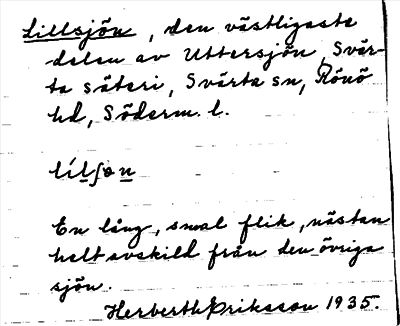 Lillsjön, den västligaste
delen av Uttersjön, Svär-
ta säteri, Svärta sn, Rönö
hd, Söderm. l.
lilʃo̲n̲
En lång, smal flik, nästan
helt avskild från den övriga
sjön.
Herberth Eriksson 1935.